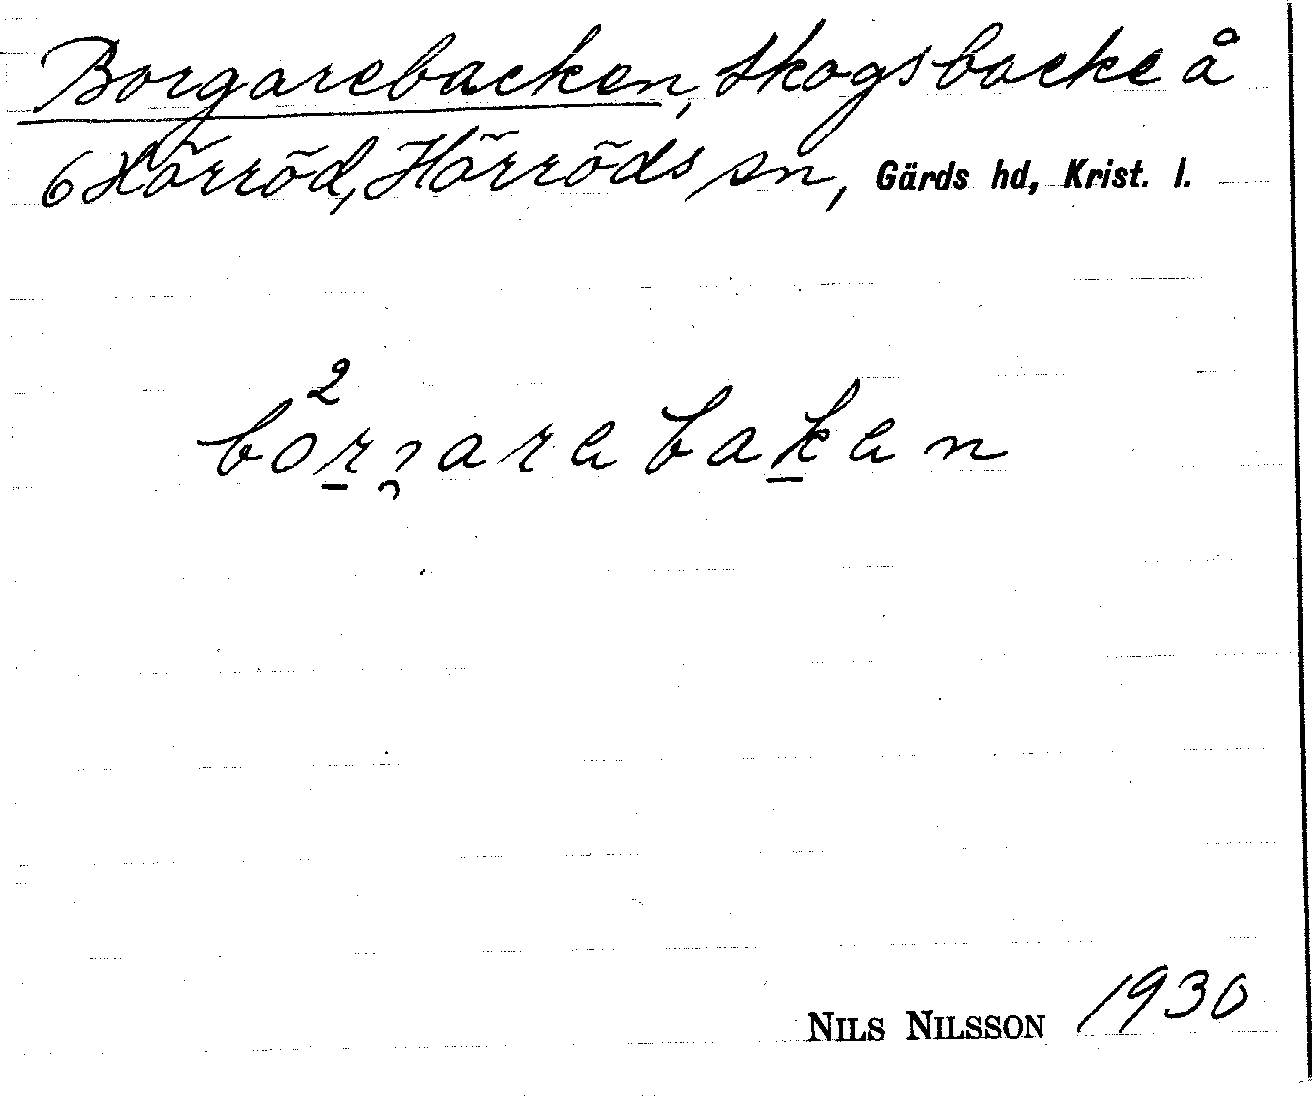 Borgarebacken, skogsbacke å
6 Hörröd, Hörröds sn, Gärds hd, Krist. l.
2
NILS NILSSON 1930